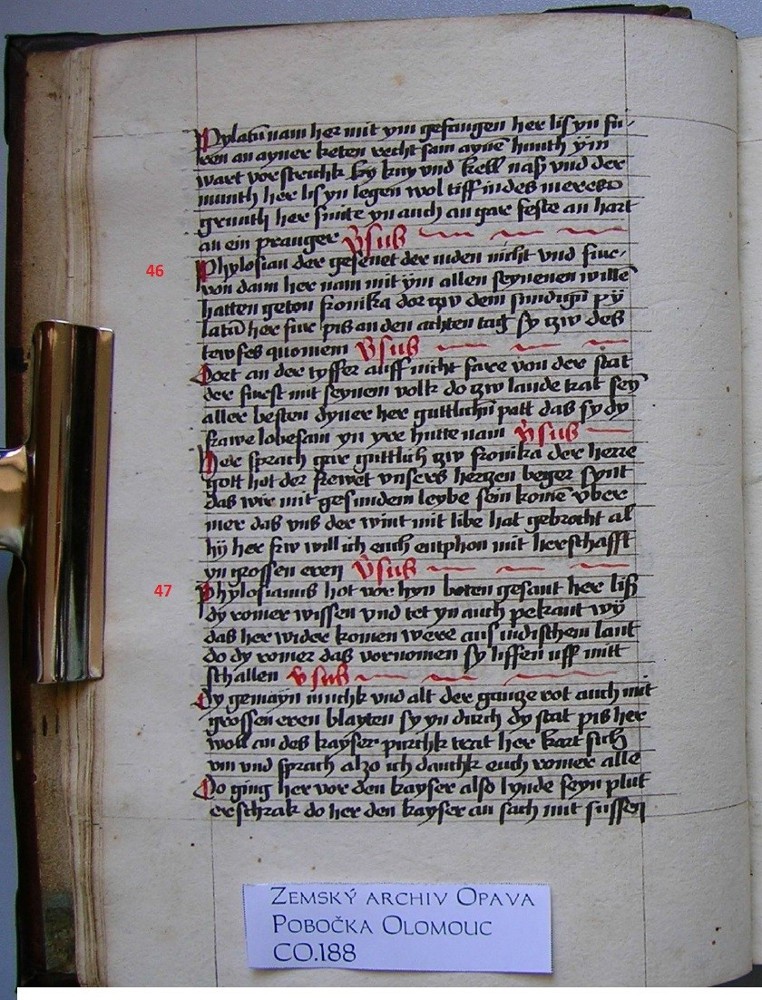 Pylatū nam her mit ym gefangen her lis yn fu-
ren an ayner keten recht sam aynē hunth ym
wart vorstrichk by kny vnd kell nasz vnd der
munth her lis yn legen wol tiff in des meres
grunth her smite yn auch an gar feste an hart
an ein pranger v̄sus
46
Phylosian der gesenet der iuden nicht vnd fuer
von dann her nam mit ym allen seynenen willē
hatten geton fronika dor zw dem sundigen py
latū her fur pis an den achten tag sy zw des
tewfes quomem v̄sus
Dort an der tyffer auff nicht fare von der stat
der furst mit seynem volk do zw lande trat sey
aller besten dyner her guttlichū patt das sy dy
frawe lobesam yn yre hutte nam v̄sus
Her sprach gar guttlich zw fronika der herre
gott hot der frewet vnsers herzen beger synt
das wir mit gesundem leybe sein kome vber
mer das vns der wint mit libe hat gebrocht al
hy her frw will ich euch entphon mit herschafft
yn grossen eren v̄sus
47
Phylosianus hot vor hyn boten gesant her lisz
dy romer wissen vnd tet yn auch pekant wy
das her wider komen were aus iudischem lant
do dy romer das vornomen sy liffen uff mitt
schallen v̄sus
Dy gemayn iunchk vnd alt der gancze rot auch mit
grossen eren blayten sy yn durch dy stat pis her
woll an des kayser purchk trat her kart sich
vm vnd sprach alzo ich danchk euch romer alle
Do ging her vor den kayser also lynde seyn plut
erschrak do her den kayser an sach mit sussen
ZEMSKÝ ARCHIV OPAVA
POBOČKA OLOMOUC
CO.188